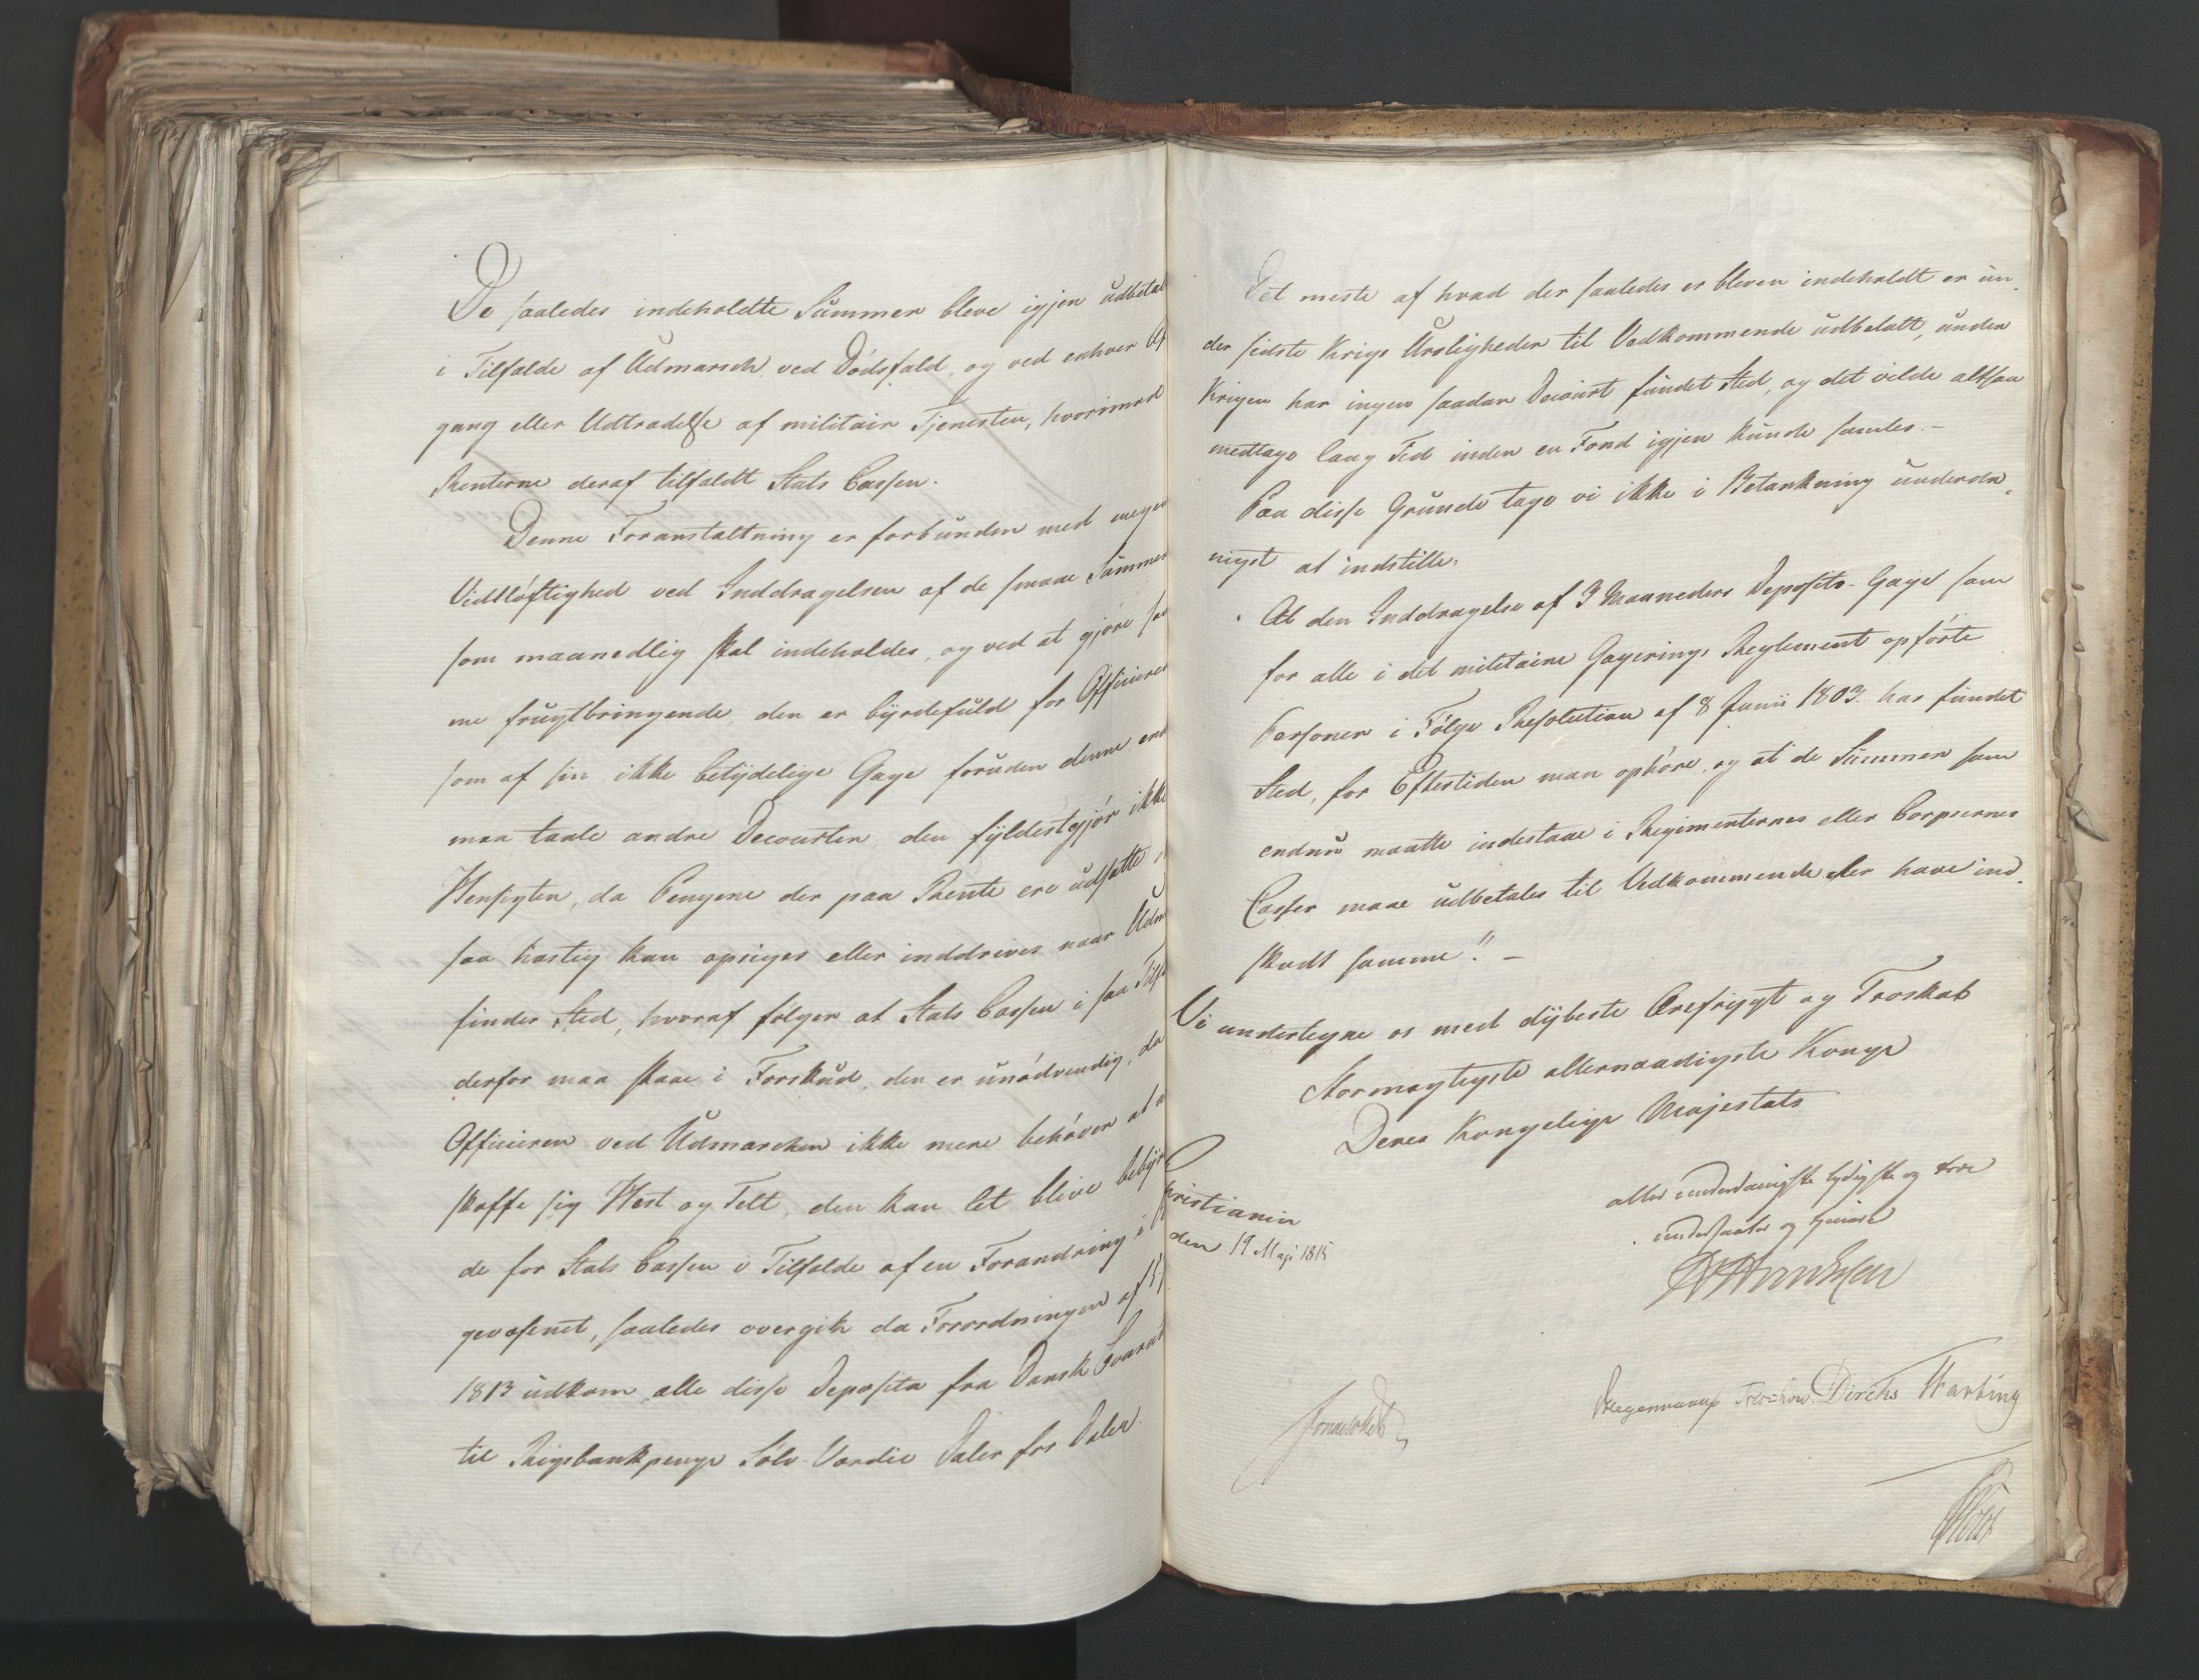 De saaledes indeholdte Summer bleve igjen udbetal
i Tilfælde af Udmarsch, ved Dødsfald, og ved enhver Af
gang eller Udtrædelse af militair Tjenesten, hvorimod
Renterne deraf tilfaldt Stats Cassen.
Denne Foranstaltning er forbunden med megen
Vidtløftighed ved Inddragelsen af de smaae Summer
som maanedlig skal indeholdes, og ved at gjøre sam
me frugtbringende, den er byrdefuld for Officieren
som af sin ikke betydelige Gage foruden denne end
maa taale andre Decourter, den fyldestgjør ikke
Hensigten, da Pengene der paa Rente ere udsatte
saa hastig kan opsiges eller inddrives naar Udm
finder Sted, hvoraf følger at Stats Cassen i saa Tilf
derfor maa staae i Forskud, den er unødvendig, da
Officieren ved Udmarschen ikke mere behøver at
skaffe sig Hest og Telt, den kan let blive bebyr
de for Stats Cassen i Tilfælde af en Forandring i
gevæsenet, saaledes overgik da Forordningen af 5
1813 udkom, alle disse Deposita fra Dansk Courant
til Rigsbankpenge Sølv-Værdie Daler for Daler.
Det meste af hvad der saaledes er bleven indeholdt er un-
der sidste Krigs Uroligheder til Vedkommende udbetalt, under
Krigen har ingen saadan Decourt fundet Sted, og det vilde altsaa
medtage lang Tid inden en Fond igjen kunde samles. -
Paa disse Grunde tage vi ikke i Betænkning underdæ-
nigst at indstille:
"At den Inddragelse af 3 Maaneders Deposito-Gage som
for alle i det militaire Gagerings Reglement opførte
Personer i Følge Resolution af 8 Junii 1803 har fundet
Sted, for Eftertiden maa ophøre, og at de Summer som
endnu maatte indestaae i Regimenternes eller Corpsernes
Casser maae udbetales til Vedkommende der have ind-
skudt samme." -
Vi undertegne os med dybeste Ærefrygt og Troskab
Stormægtigste allernaadigste Konge
Deres Kongelige Majestæts
Christiania
den 19 Maji 1815
allerunderdanigste lydigste og troe
undersaatter og tjenere
Treschow Diriks Hartwig